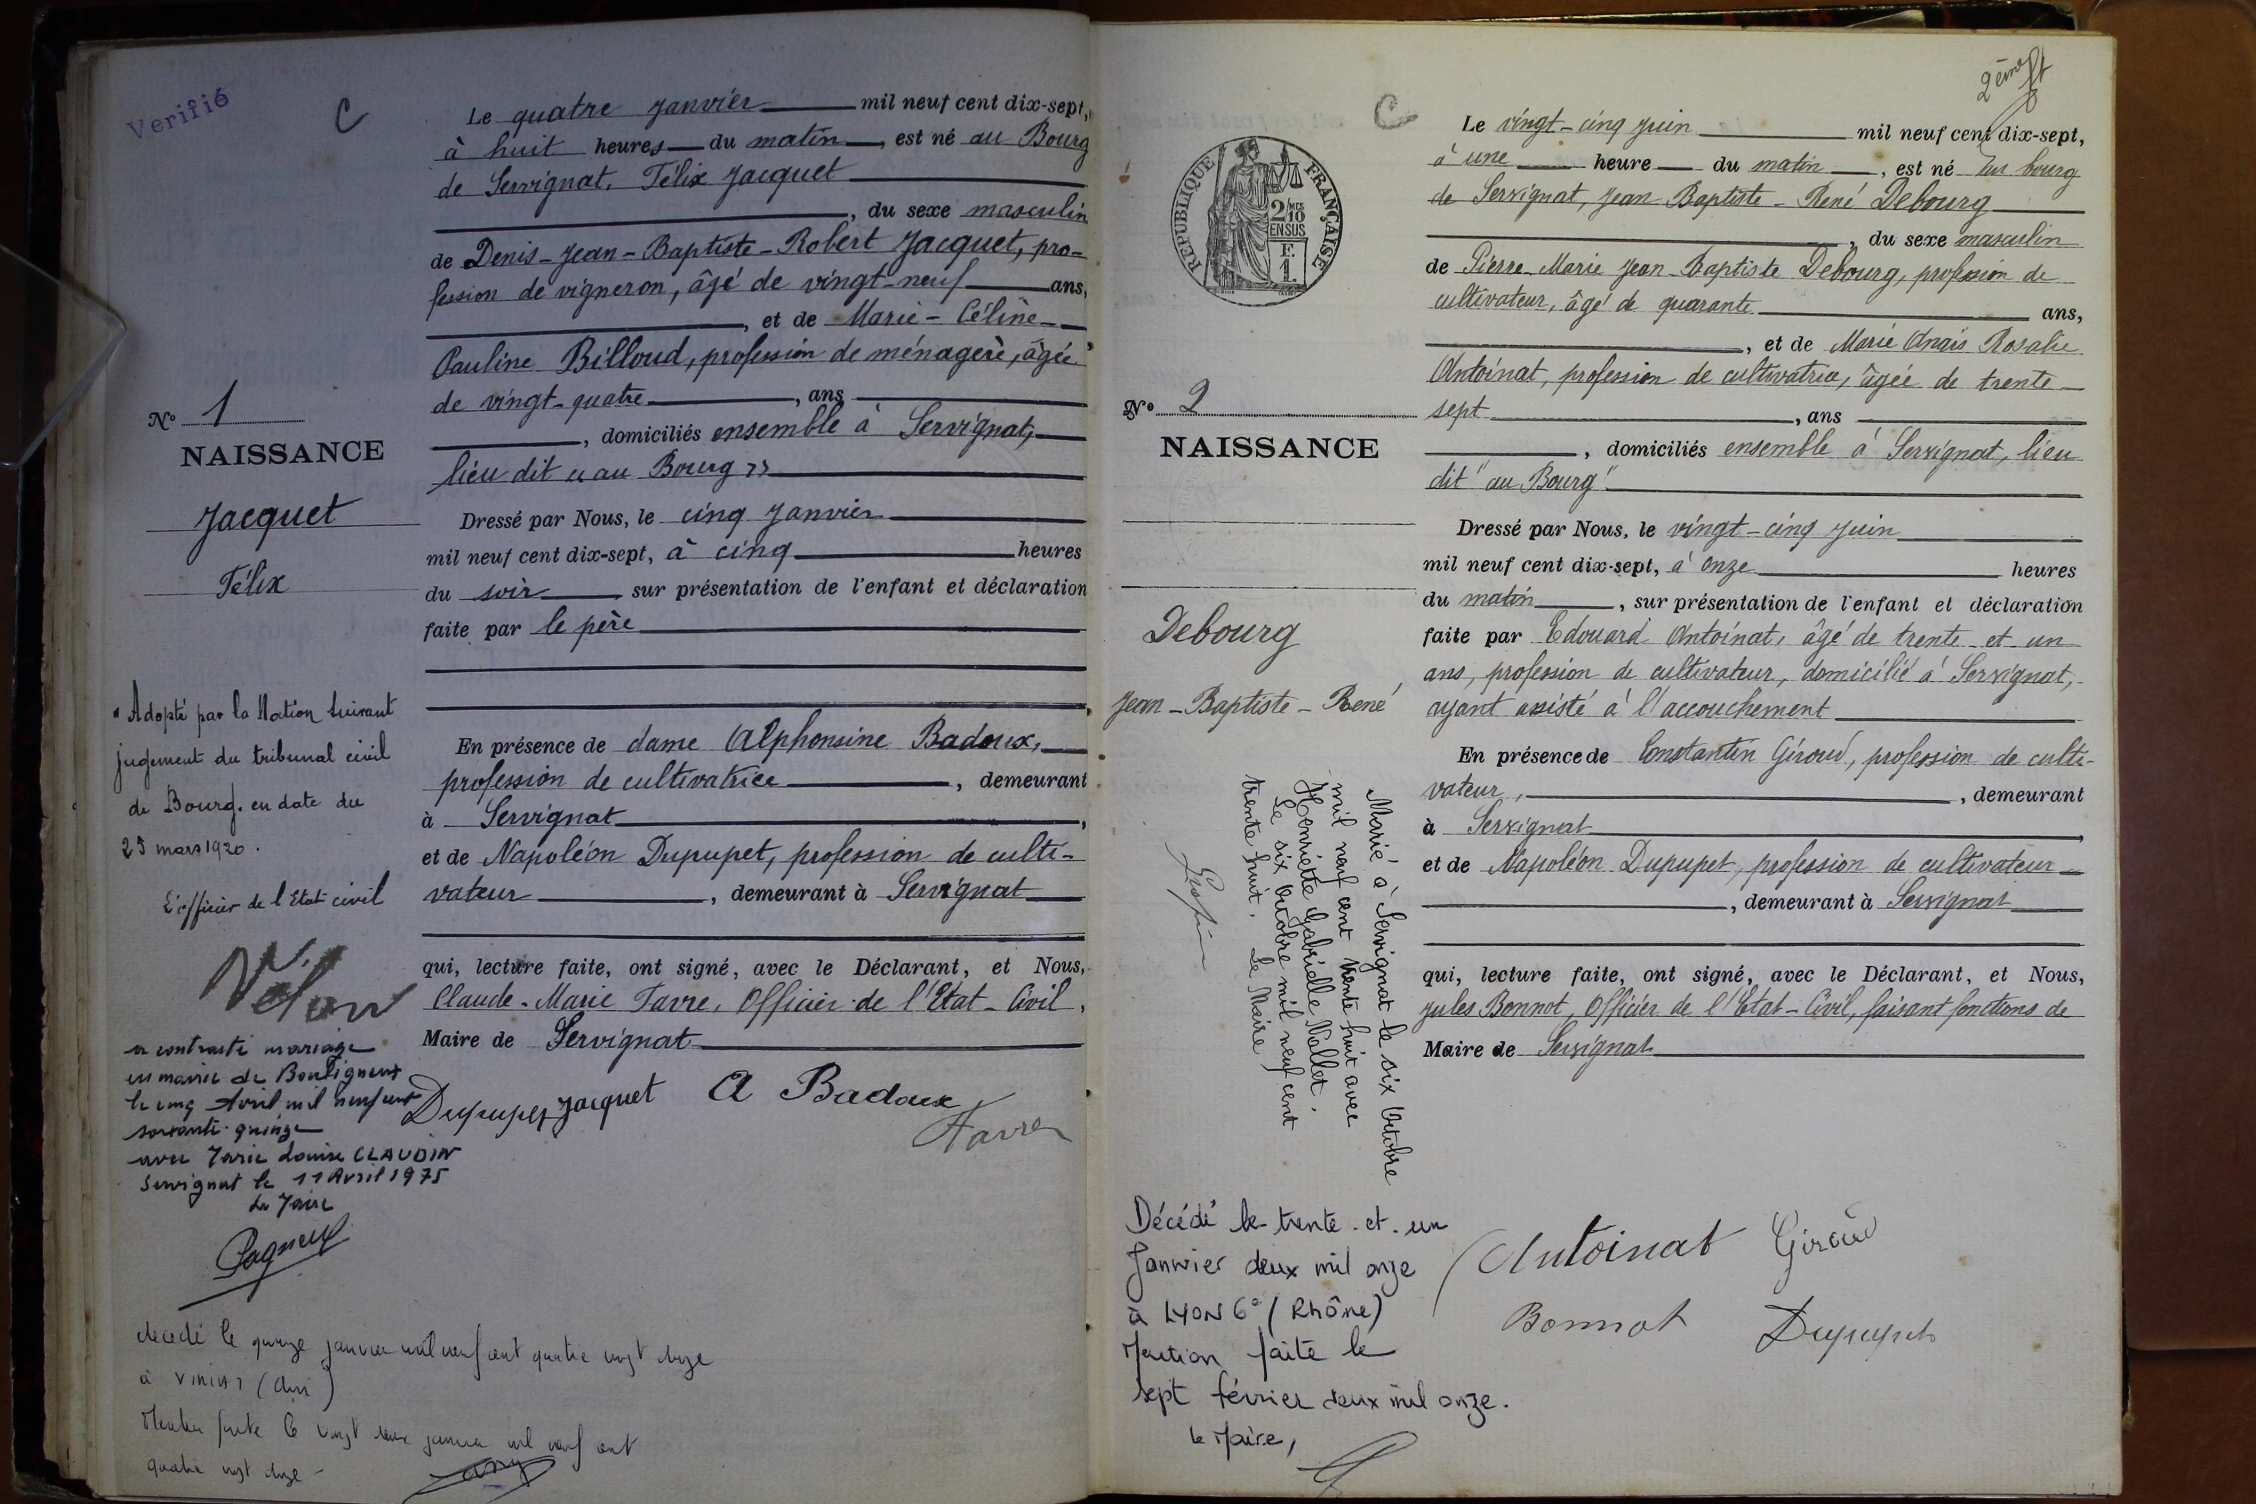 Verifié
C
Le quatre Janvier mil neuf cent dix-sept,
à huit heures du matin, est né au Bourg
de Servignat, Félix Jacquet
, du sexe masculin
de Denis-Jean-Baptiste-Robert Jacquet, pro-
fession de vigneron, âgé de vingt-neuf ans,
, et de Marie-Céline-
Pauline Billoud, profession de ménagère, âgée
de vingt-quatre, ans
, domiciliés ensemble à Servignat,
lieu dit "au Bourg"
Nº 1
NAISSANCE
Jacquet
Félix
Dressé par Nous, le cinq Janvier
mil neuf cent dix-sept, à cinq heures
du soir sur présentation de l'enfant et déclaration
faite par le père
En présence de dame Alphonsine Badoux,
profession de cultivatrice, demeurant
à Servignat,
et de Napoléon Dupupet, profession de culti-
vateur, demeurant à Servignat
qui, lecture faite, ont signé, avec le Déclarant, et Nous,
Claude-Marie Favre, Officier de l'Etat-Civil,
Maire de Servignat
Dupupet Jacquet A Badoux
Favre
Adopté par la Nation suivant
jugement du tribunal civil
de Bourg. en date du
25 mars 1920.
L'officier de l'Etat civil
a contracté mariage
en mairie de Boutigneux
le cinq Avril mil neuf cent
soixante-quinze
avec Marie Louise CLAUDIN
Servignat le 11 Avril 1975
Le Maire
décédé le quinze janvier mil neuf cent quatre vingt
à (Ain)
Mention faite le vingt janvier mil neuf cent
quatre vingt
2ème ft
C
RÉPUBLIQUE FRANÇAISE
2/10
MES
EN SUS
F.
1.
Le vingt-cinq Juin mil neuf cent dix-sept,
à une heure du matin, est né au bourg
de Servignat, Jean-Baptiste-René Debourg
, du sexe masculin
de Pierre-Marie Jean-Baptiste Debourg, profession de
cultivateur, âgé de quarante ans,
, et de Marie Anaïs Rosalie
Antoinat, profession de cultivatrice, âgée de trente
sept, ans
, domiciliés ensemble à Servignat, lieu
dit "au Bourg"
Nº 2
NAISSANCE
Debourg
Jean-Baptiste-René
Dressé par Nous, le vingt-cinq Juin
mil neuf cent dix-sept, à onze heures
du matin, sur présentation de l'enfant et déclaration
faite par Edouard Antoinat, âgé de trente et un
ans, profession de cultivateur, domicilié à Servignat,
ayant assisté à l'accouchement
En présence de Constantin Giroud, profession de culti-
vateur, demeurant
à Servignat
et de Napoléon Dupupet, profession de cultivateur
, demeurant à Servignat
qui, lecture faite, ont signé, avec le Déclarant, et Nous,
Jules Bonnot, Officier de l'Etat-Civil, faisant fonctions de
Maire de Servignat
Antoinat Giroud
Bonnot Dupupet
Marié à Servignat le six Octobre
mil neuf cent trente huit avec
Henriette Gabrielle Vallet.
Le six Octobre mil neuf cent
trente huit. Le Maire
Décédé le trente-et-un
Janvier deux mil onze
à LYON 6e (Rhône)
Mention faite le
sept février deux mil onze.
le Maire,